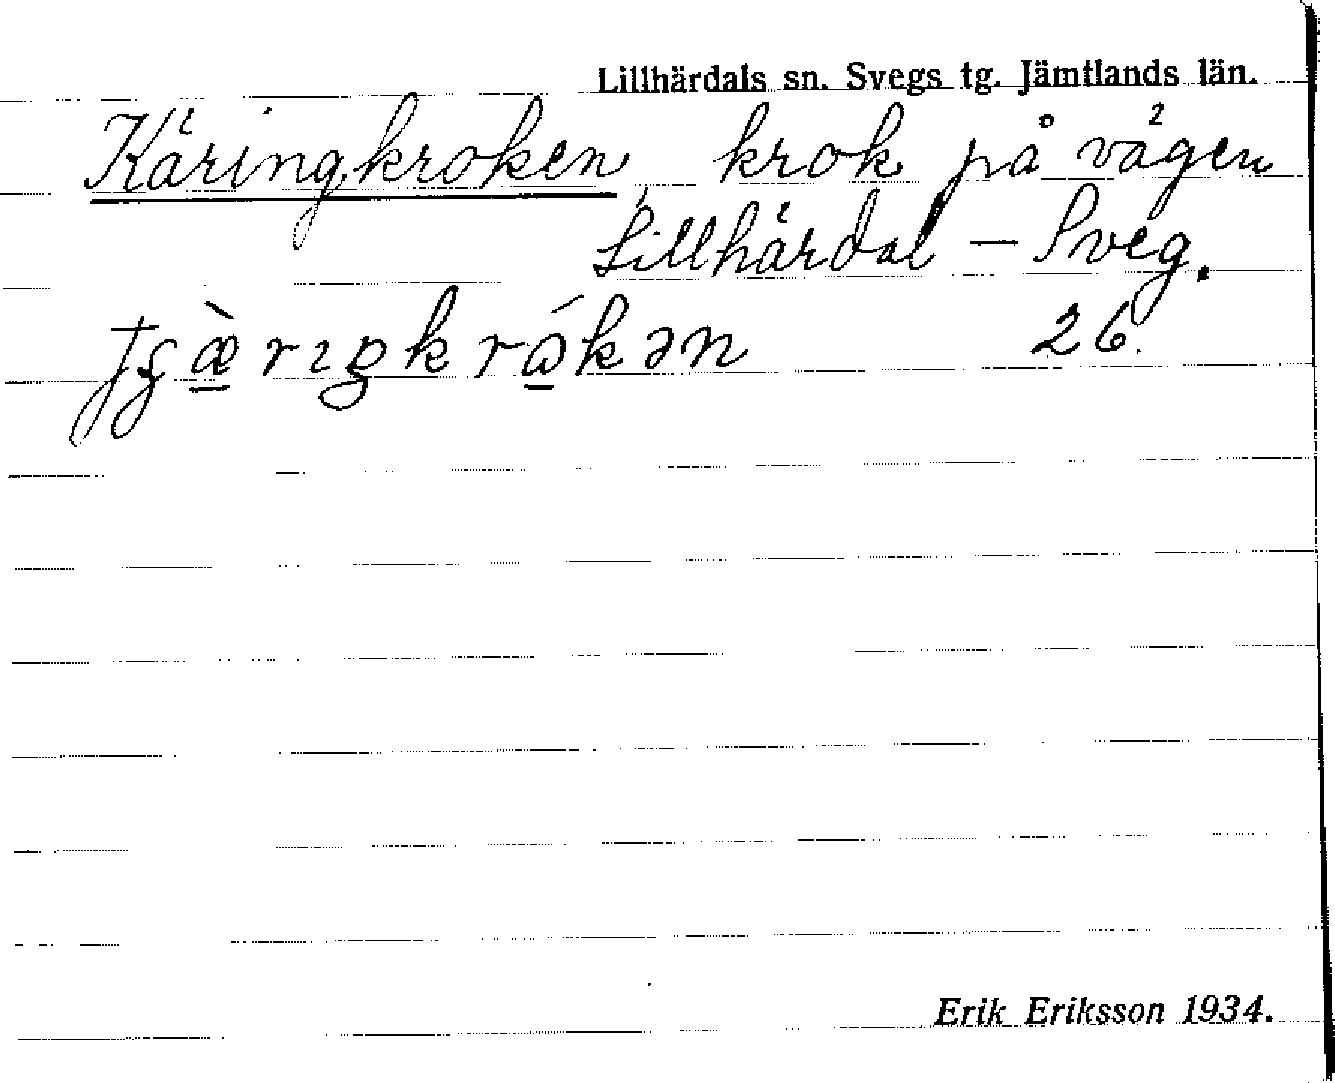 Lillhärdals sn. Svegs tg. Jämtlands län.
Käringkroken, krok på vägen
Lillhärdal – Sveg.
26.
Erik Eriksson 1934.